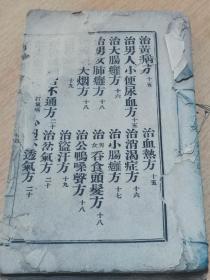 治黃病方十五
治男人小便尿血方十五
治大腸癰方十六
治男女肺癰方十八
大烟方十八
不通方二十
治血熱方十五
治消渴症方十六
治小腸癰方十七
治男女吞食頭髮方十八
治公鴨嗓聲方十八
治盜汗方十九
治岔氣方二十
透氣方二十